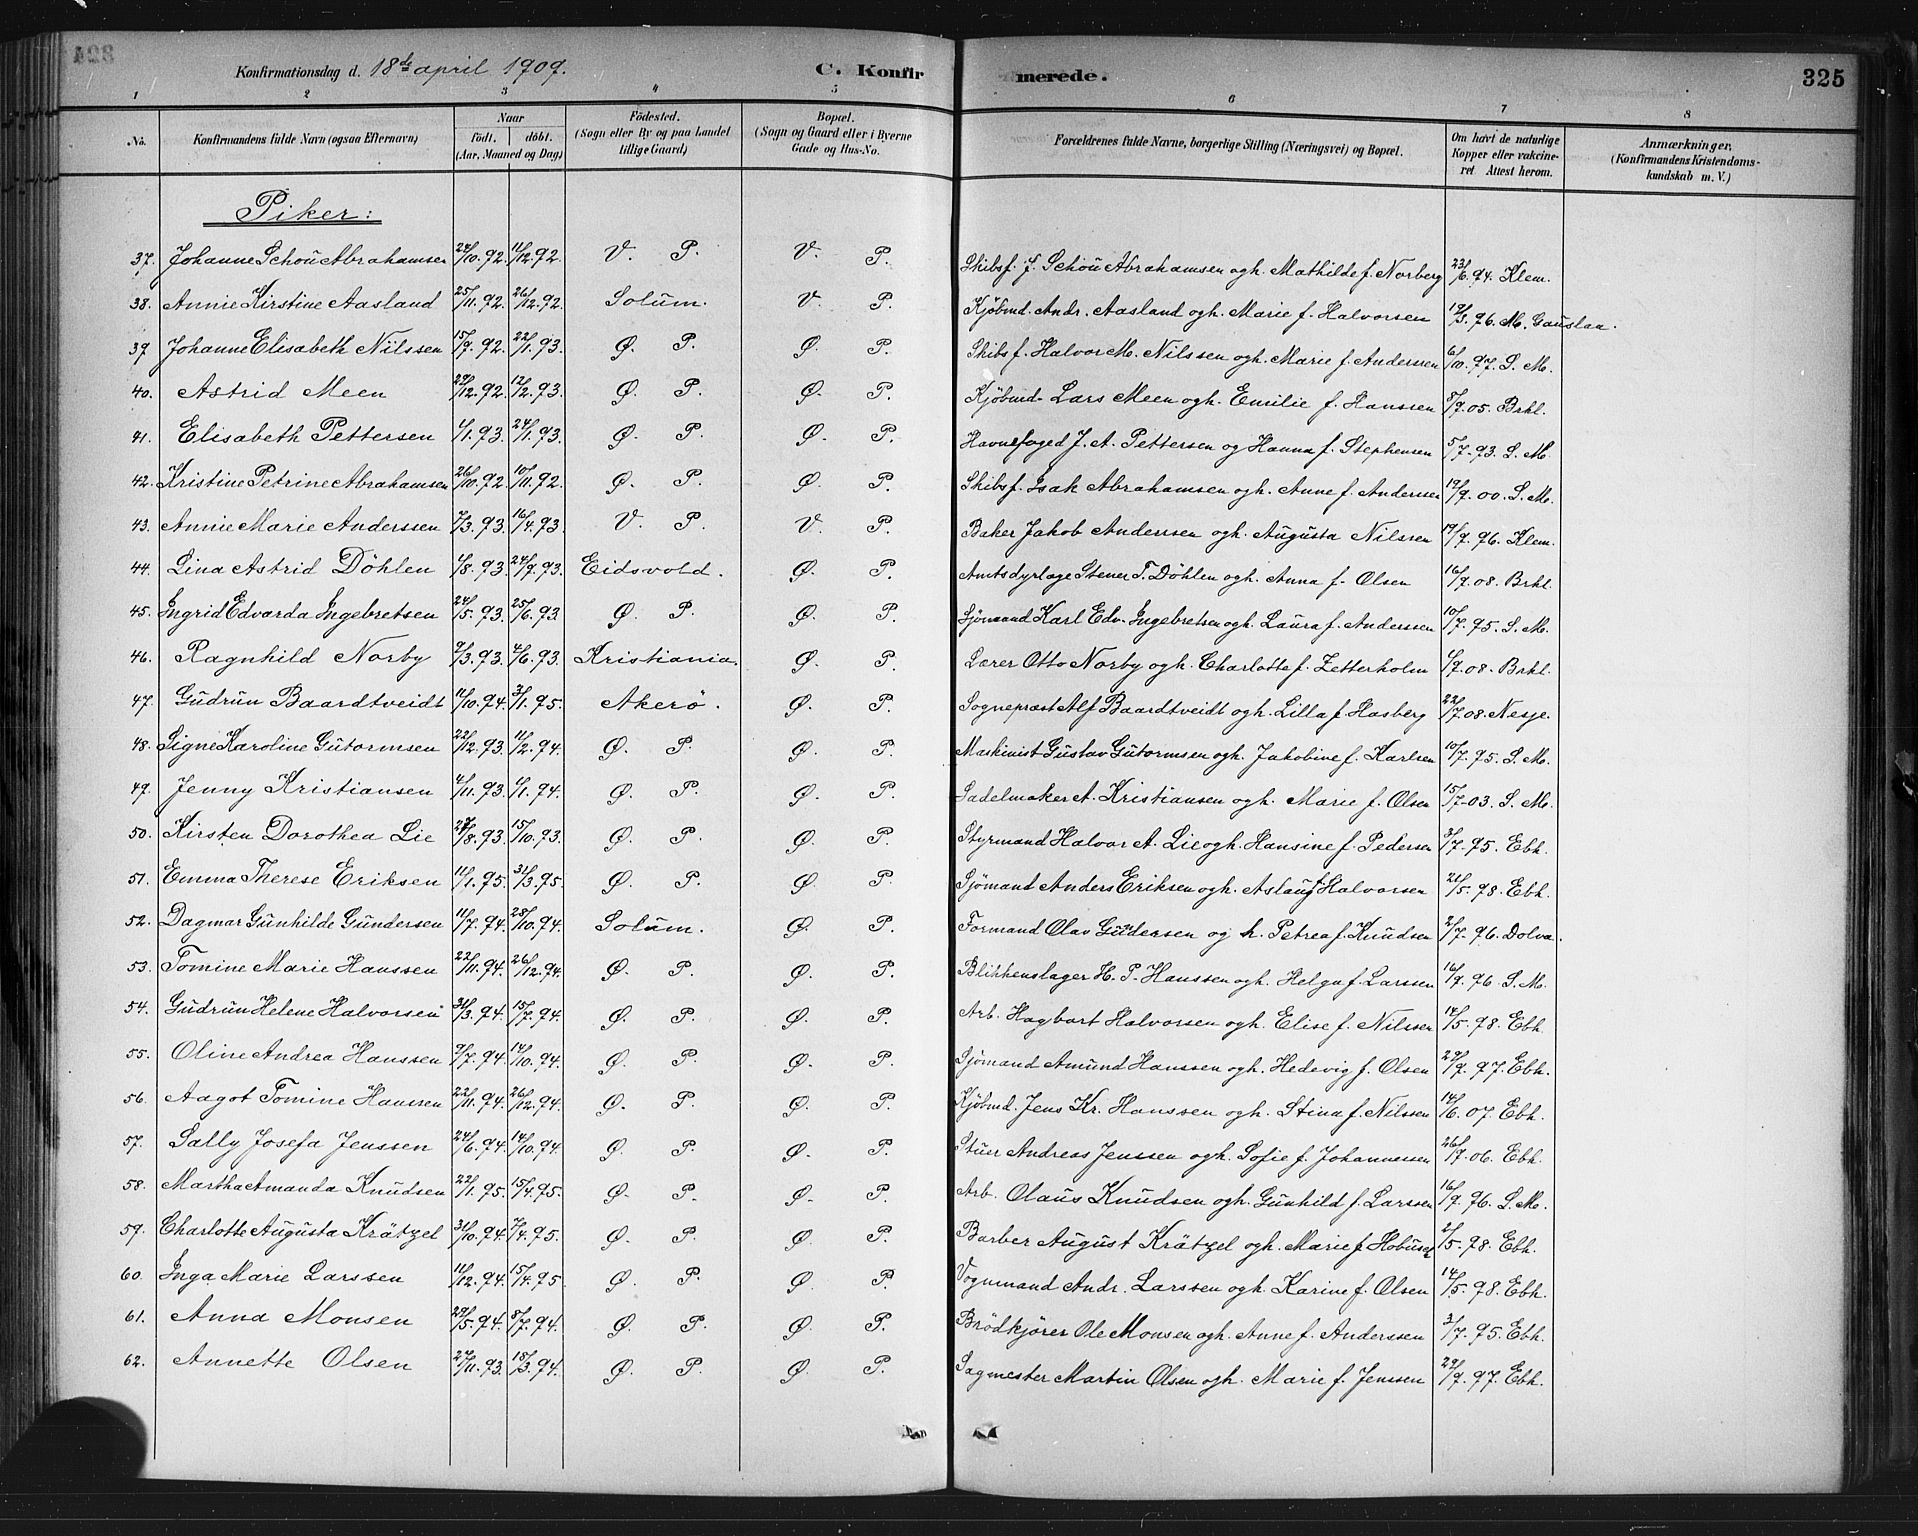 Konfirmationsdag d. 18de april 1909. C. Konfirmerede. 325
1 2 3 4 5 6 7 8
No. Konfirmandens fulde Navn (ogsaa Efternavn) Naar födt. döbt. (Aar, Maaned og Dag) Födested. (Sogn eller By og paa Landet tillige Gaard) Bopæl. (Sogn og Gaard eller i Byerne Gade og Hus-No. Forældrenes fulde Navne, borgerlige Stilling (Næringsvei) og Bopæl. Om havt de naturlige Kopper eller vakcineret Attest herom. Anmærkninger, (Konfirmandens Kristendomskundskab m. V.)
Piker:
37. Johanne Schou Abrahamsen 24/10. 92. 11/12. 92. V. P. V. P. Skibsf. J. Schou Abrahamsen og h. Mathilde f. Norberg 23/6. 94. Klem.
38. Annie Kirstine Aasland 25/11. 92. 26/12. 92. Solum. V. P. Kjöbmd. Andr. Aasland og h. Marie f. Halvorsen 19/3. 96. M. Gauslaa.
39 Johanne Elisabeth Nilssen 15/9. 92. 22/1. 93. Ø. P. Ø. P. Skibsf. Halvor M. Nilssen og h. Marie f. Andersen 6/10. 97. S. M.
40. Astrid Meen 29/12. 92. 12/2. 93. Ø. P. Ø. P. Kjöbmd. Lars Meen og h. Emilie f. Hanssen 8/9. 05. Brhl.
41. Elisabeth Pettersen 1/1. 93. 24/1. 93. Ø. P. Ø. P. Havnefoged J. A. Pettersen og Hanna f. Stephensen 5/7. 93. S. M.
42. Kristine Petrine Abrahamsen 26/10. 92. 10/11. 92. Ø. P. Ø. P. Skibsf. Isak Abrahamsen og h. Anne f. Andersen 19/9. 00. S. M.
43. Annie Marie Anderssen 7/3. 93. 16/4. 93. V. P. V. P. Baker Jakob Anderssen og h. Augusta Nilssen 17/9. 96. Klem.
44. Lina Astrid Döhlen 1/8. 93. 24/9. 93. Eidsvold. Ø. P. Amtsdyrlæge Stener T. Döhlen og h. Anna f. Olsen 16/9. 08. Brhl.
45. Ingrid Edvarda Ingebretsen 24/5. 93. 25/6. 93. Ø. P. Ø. P. Sjömand Karl Edv. Ingebretsen og h. Laura f. Anderssen 10/7. 95. S. M.
46. Ragnhild Norby 9/3. 93. 4/6. 93. Kristiania. Ø. P. Lærer Otto Norby og h. Charlotte f. Zetterholm 1/9. 08. Brhl.
47. Gudrun Baardtveidt 11/10. 94. 3/1. 95. Akerö. Ø. P. Sognepræst Alf Baardtveidt og h. Lilla f. Hasberg 22/7. 08. Nesje.
48. Signe Karoline Gutormsen 22/12. 93. 11/2. 94. Ø. P. Ø. P. Maskinist Gustav Gutormsen og h. Jakobine f. Karlsen 10/7. 95. S. M.
49. Jenny Kristiansen 4/11. 93. 1/1. 94. Ø. P. Ø. P. Sadelmaker A. Kristiansen og h. Marie f. Olsen 15/7. 03. S. M.
50. Kirsten Dorothea Lie 27/8. 93. 15/10. 93. Ø. P. Ø. P. Styrmand Halvor A. Lie og h. Hansine f. Pedersen 3/7. 95. Ebh.
51. Emma Therese Eriksen 11/1. 95. 31/3. 95. Ø. P. Ø. P. Sjömand Anders Eriksen og h. Aslaug f. Halvorsen 21/5. 98. Ebh.
52. Dagmar Gunhilde Gundersen 11/7. 94. 28/10. 94. Solum. Ø. P. Formand Olav Gundersen og h. Petrea f. Knudsen 2/7. 96. Dolva.
53. Tomine Marie Hanssen 22/11. 94. 26/12. 94. Ø. P. Ø. P. Blikkenslager H. P. Hanssen og h. Helga f. Larssen 16/9. 96. S. M.
54. Gudrun Helene Halvorsen 31/3. 94. 15/7. 94. Ø. P. Ø. P. Arb. Hagbart Halvorsen og h. Elise f. Nilssen 14/5. 98. Ebh.
55. Oline Andrea Hanssen 9/7. 94. 14/10. 94. Ø. P. Ø. P. Sjömand Amund Hanssen og h. Hedevig f. Olsen 29/9. 97. Ebh.
56. Aagot Tomine Hanssen 22/11. 94. 26/12. 94. Ø. P. Ø. P. Kjöbmd. Jens Kr. Hanssen og h. Stina f. Nilssen 14/6. 07. Ebh.
57. Sally Josefa Jenssen 24/6. 94. 14/10. 94. Ø. P. Ø. P. Stuer Andreas Jenssen og h. Sofie f. Johannessen 26/9. 06. Ebh.
58. Martha Amanda Knudsen 22/1. 95. 15/4. 95. Ø. P. Ø. P. Arb. Olaus Knudsen og h. Gunhild f. Larssen 16/9. 96. S. M.
59. Charlotte Augusta Krätzel 31/10. 94. 7/4. 95. Ø. P. Ø. P. Barber August Krätzel og h. Marie f. 2/5. 98. Ebh.
60. Inga Marie Larssen 11/12. 94. 15/4. 95. Ø. P. Ø. P. Vognmand Andr. Larssen og h. Karine f. Olsen 14/5. 98. Ebh.
61. Anna Monsen 29/5. 94. 8/7. 94. Ø. P. Ø. P. Brödkjörer Ole Monsen og h. Anne f. Anderssen 3/7. 95. Ebh.
62. Annette Olsen 27/11. 93. 18/3. 94. Ø. P. Ø. P. Sagmester Martin Olsen og h. Marie f. Jenssen 29/9. 97. Ebh.